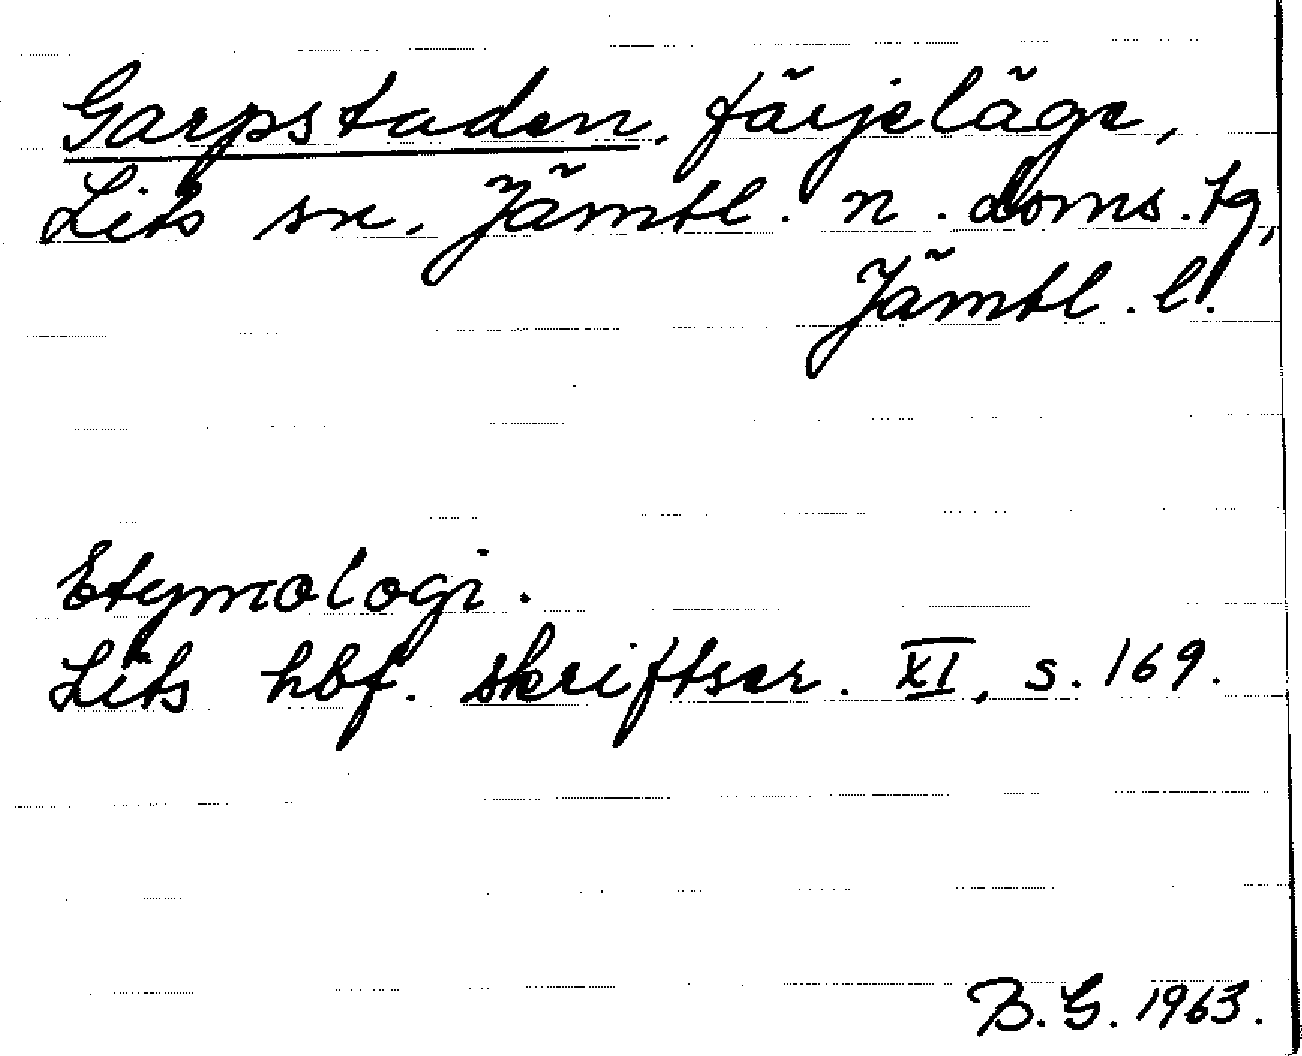 Garpstaden, färjeläge,
Lits sn. Jämtl. n. doms. tg,
Jämtl. l.
Etymologi.
Lits hbf. skriftser. XI, s. 169.
B. G. 1963.